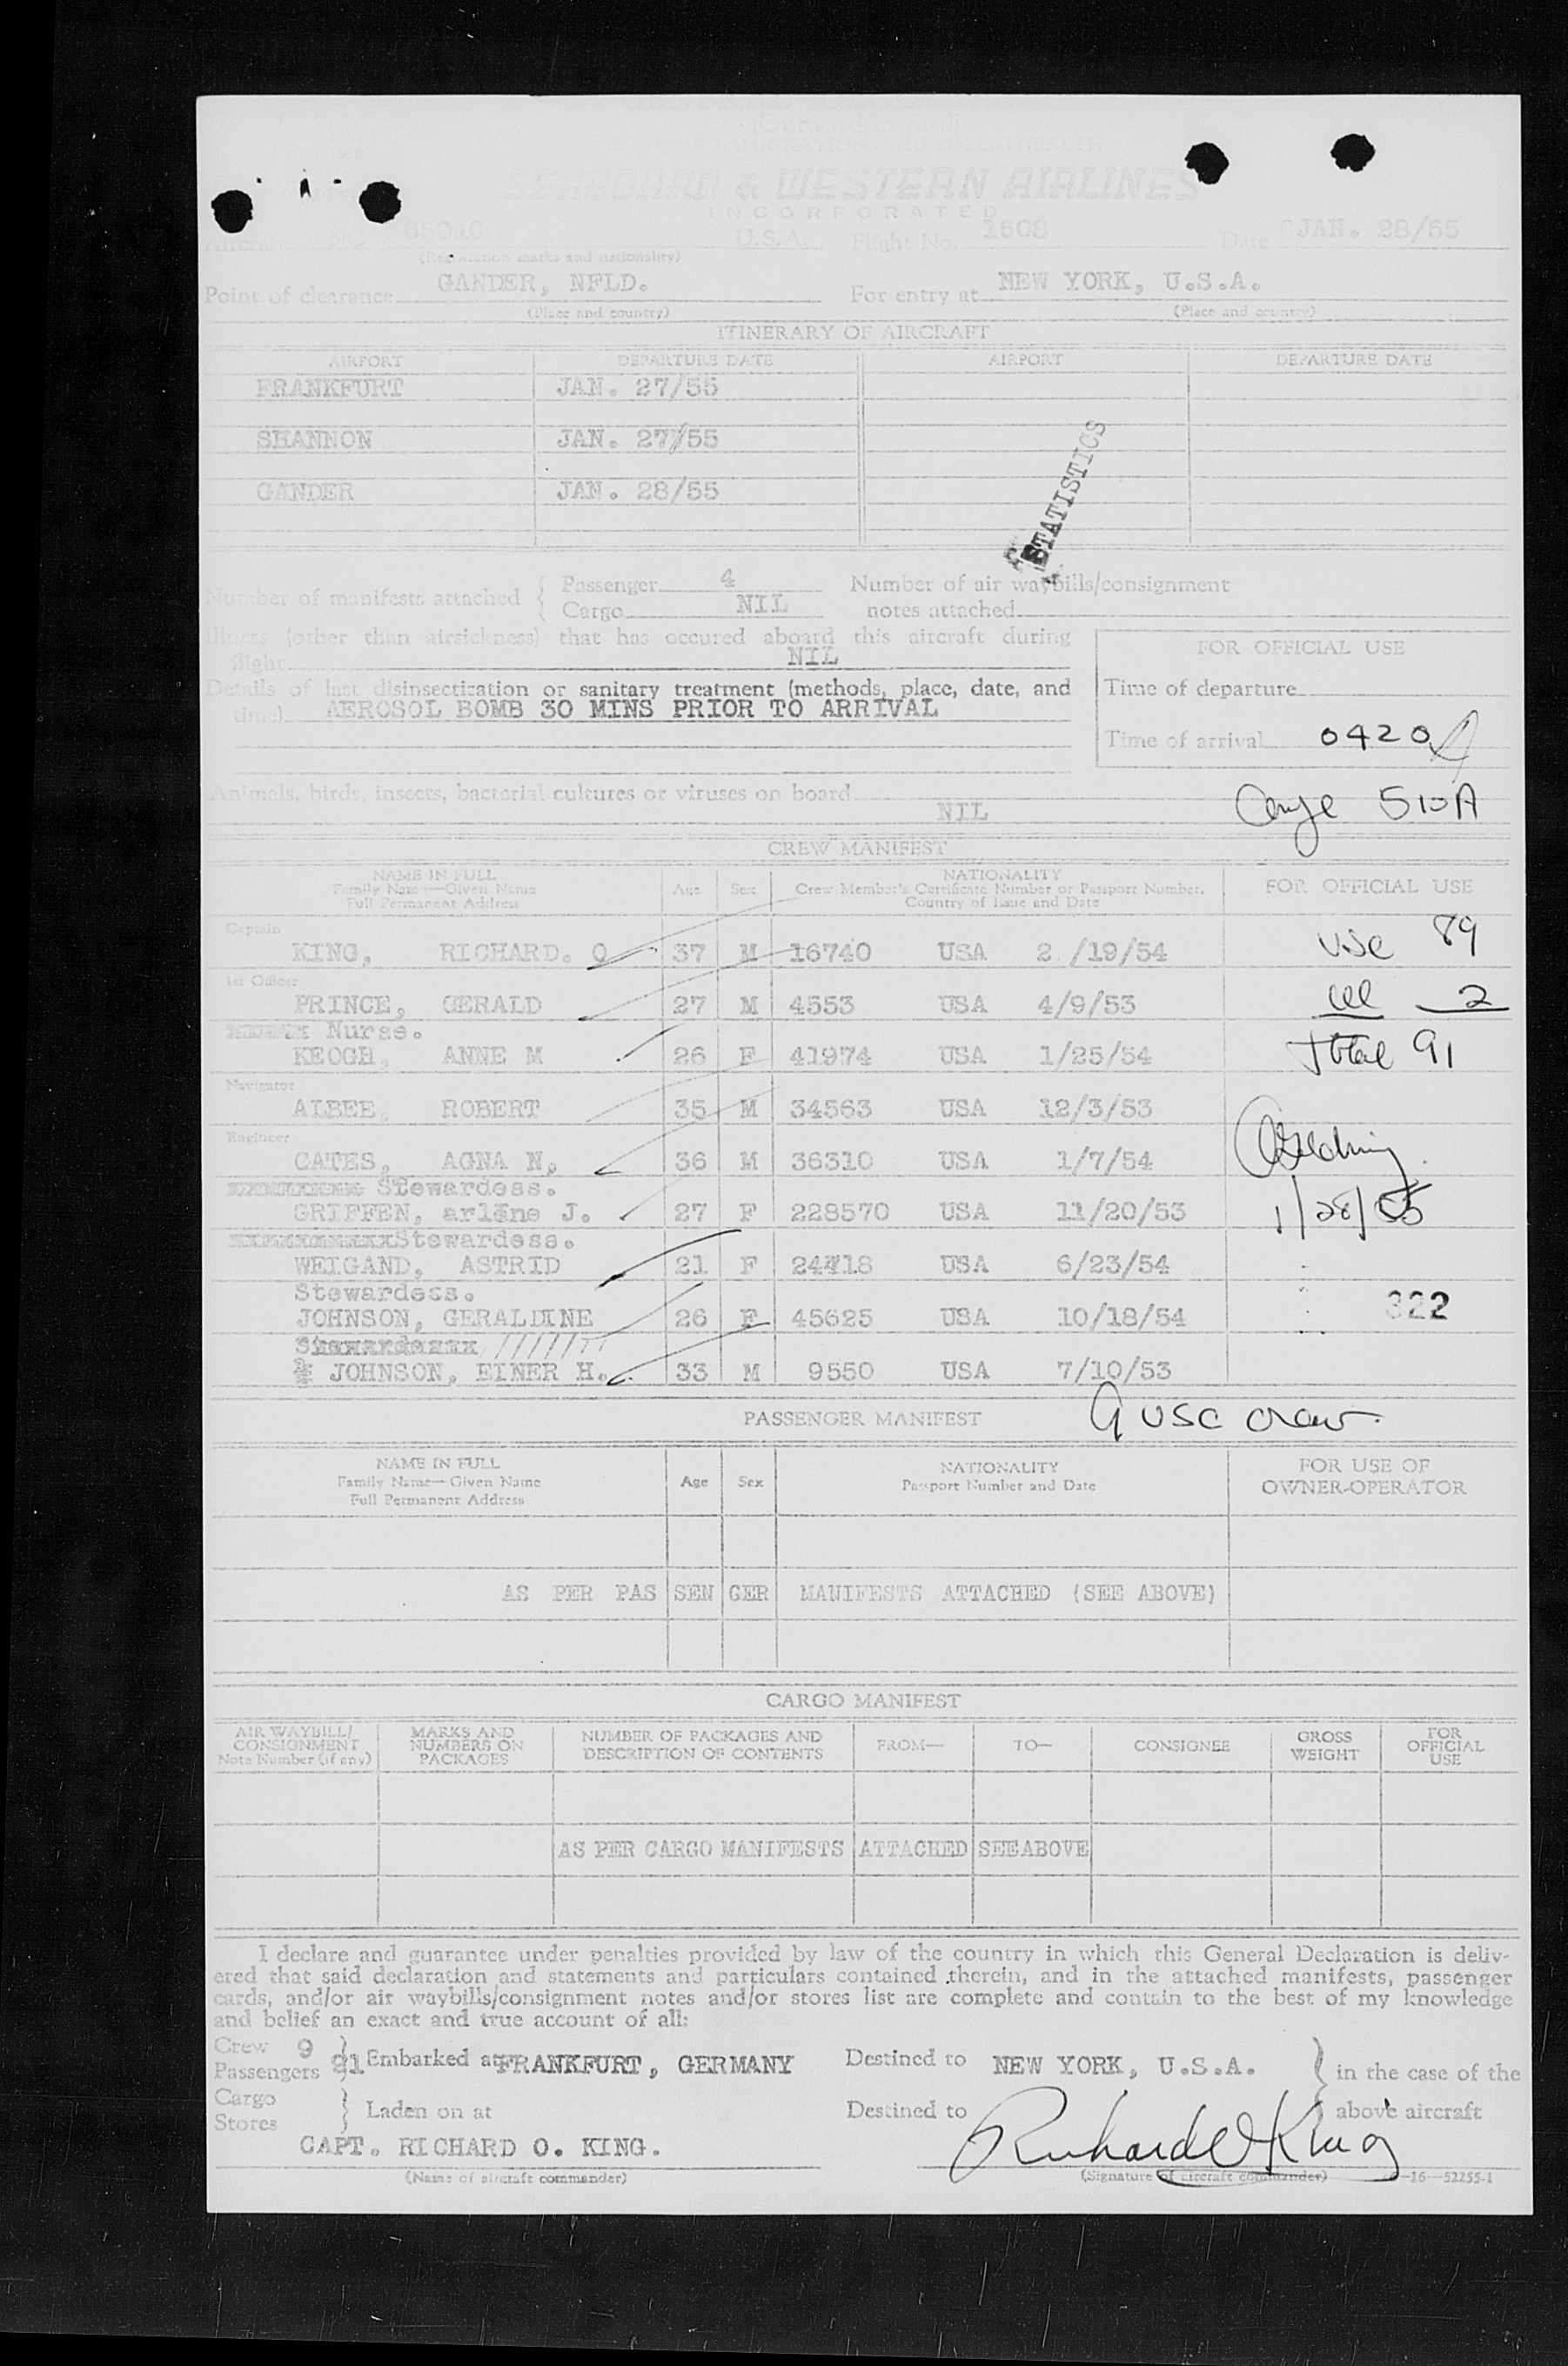 SEABOARD & WESTERN AIRLINES
INCORPORATED
Aircraft NO. U.S.A. Flight No. 1608 Date JAN. 28/55
(Registration marks and nationality)
Point of clearance GANDER, NFLD. For entry at NEW YORK, U.S.A.
(Place and country) (Place and country)
ITINERARY OF AIRCRAFT
AIRPORT DEPARTURE DATE AIRPORT DEPARTURE DATE
FRANKFURT JAN. 27/55
SHANNON JAN. 27/55
GANDER JAN. 28/55
STATISTICS
Number of manifests attached { Passenger 4 Number of air waybills/consignment
Cargo NIL notes attached
Illness (other than airsickness) that has occured aboard this aircraft during
flight NIL
FOR OFFICIAL USE
Details of last disinsectization or sanitary treatment (methods, place, date, and
time) AEROSOL BOMB 30 MINS PRIOR TO ARRIVAL
Time of departure
Time of arrival 0420
Animals, birds, insects, bacterial cultures or viruses on board
NIL
510A
CREW MANIFEST
NAME IN FULL Age Sex NATIONALITY FOR OFFICIAL USE
Family Name—Given Name Crew Member's Certificate Number or Passport Number.
Full Permanent Address Country of Issue and Date
Captain
KING, RICHARD. O 37 M 16740 USA 2 /19/54 USC 89
1st Officer
PRINCE, GERALD 27 M 4553 USA 4/9/53 2
Nurse.
KEOGH, ANNE M 26 F 41974 USA 1/25/54 Total 91
Navigator
ALBEE, ROBERT 35 M 34563 USA 12/3/53
Engineer
CATES, AGNA N, 36 M 36310 USA 1/7/54
Stewardess.
GRIFFEN, arlene J. 27 F 228570 USA 11/20/53 1/28/55
Stewardess.
WEIGAND, ASTRID 21 F 24418 USA 6/23/54
Stewardess.
JOHNSON, GERALDINE 26 F 45625 USA 10/18/54 322
JOHNSON, EINER H. 33 M 9550 USA 7/10/53
PASSENGER MANIFEST 9 USC crew
NAME IN FULL Age Sex NATIONALITY FOR USE OF
Family Name—Given Name Passport Number and Date OWNER-OPERATOR
Full Permanent Address
AS PER PAS SEN GER MANIFESTS ATTACHED (SEE ABOVE)
CARGO MANIFEST
AIR WAYBILL/ MARKS AND NUMBER OF PACKAGES AND FROM— TO— CONSIGNEE GROSS FOR
CONSIGNMENT NUMBERS ON DESCRIPTION OF CONTENTS WEIGHT OFFICIAL
Note Number (if any) PACKAGES USE
AS PER CARGO MANIFESTS ATTACHED SEE ABOVE
I declare and guarantee under penalties provided by law of the country in which this General Declaration is deliv-
ered that said declaration and statements and particulars contained therein, and in the attached manifests, passenger
cards, and/or air waybills/consignment notes and/or stores list are complete and contain to the best of my knowledge
and belief an exact and true account of all:
Crew 9
Passengers 91 } Embarked at FRANKFURT, GERMANY Destined to NEW YORK, U.S.A. } in the case of the
Cargo
Stores } Laden on at Destined to above aircraft
CAPT. RICHARD O. KING. Richard O King
(Name of aircraft commander) (Signature of aircraft commander) 16—52255-1